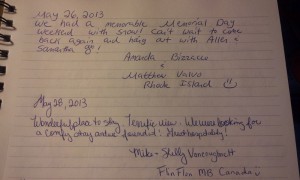 May 26, 2013
We had a memorable Memorial Day
weekend with snow! Can't wait to come
back again and hang out with Allen &
Samantha
Amanda
&
Matthew
Rhode Island
May 28, 2013
Wonderful place to stay. Terrific view - We were looking for
a comfy stay and we found it! Great hospitality!
Mike + Shelly
Flin Flon MB Canada